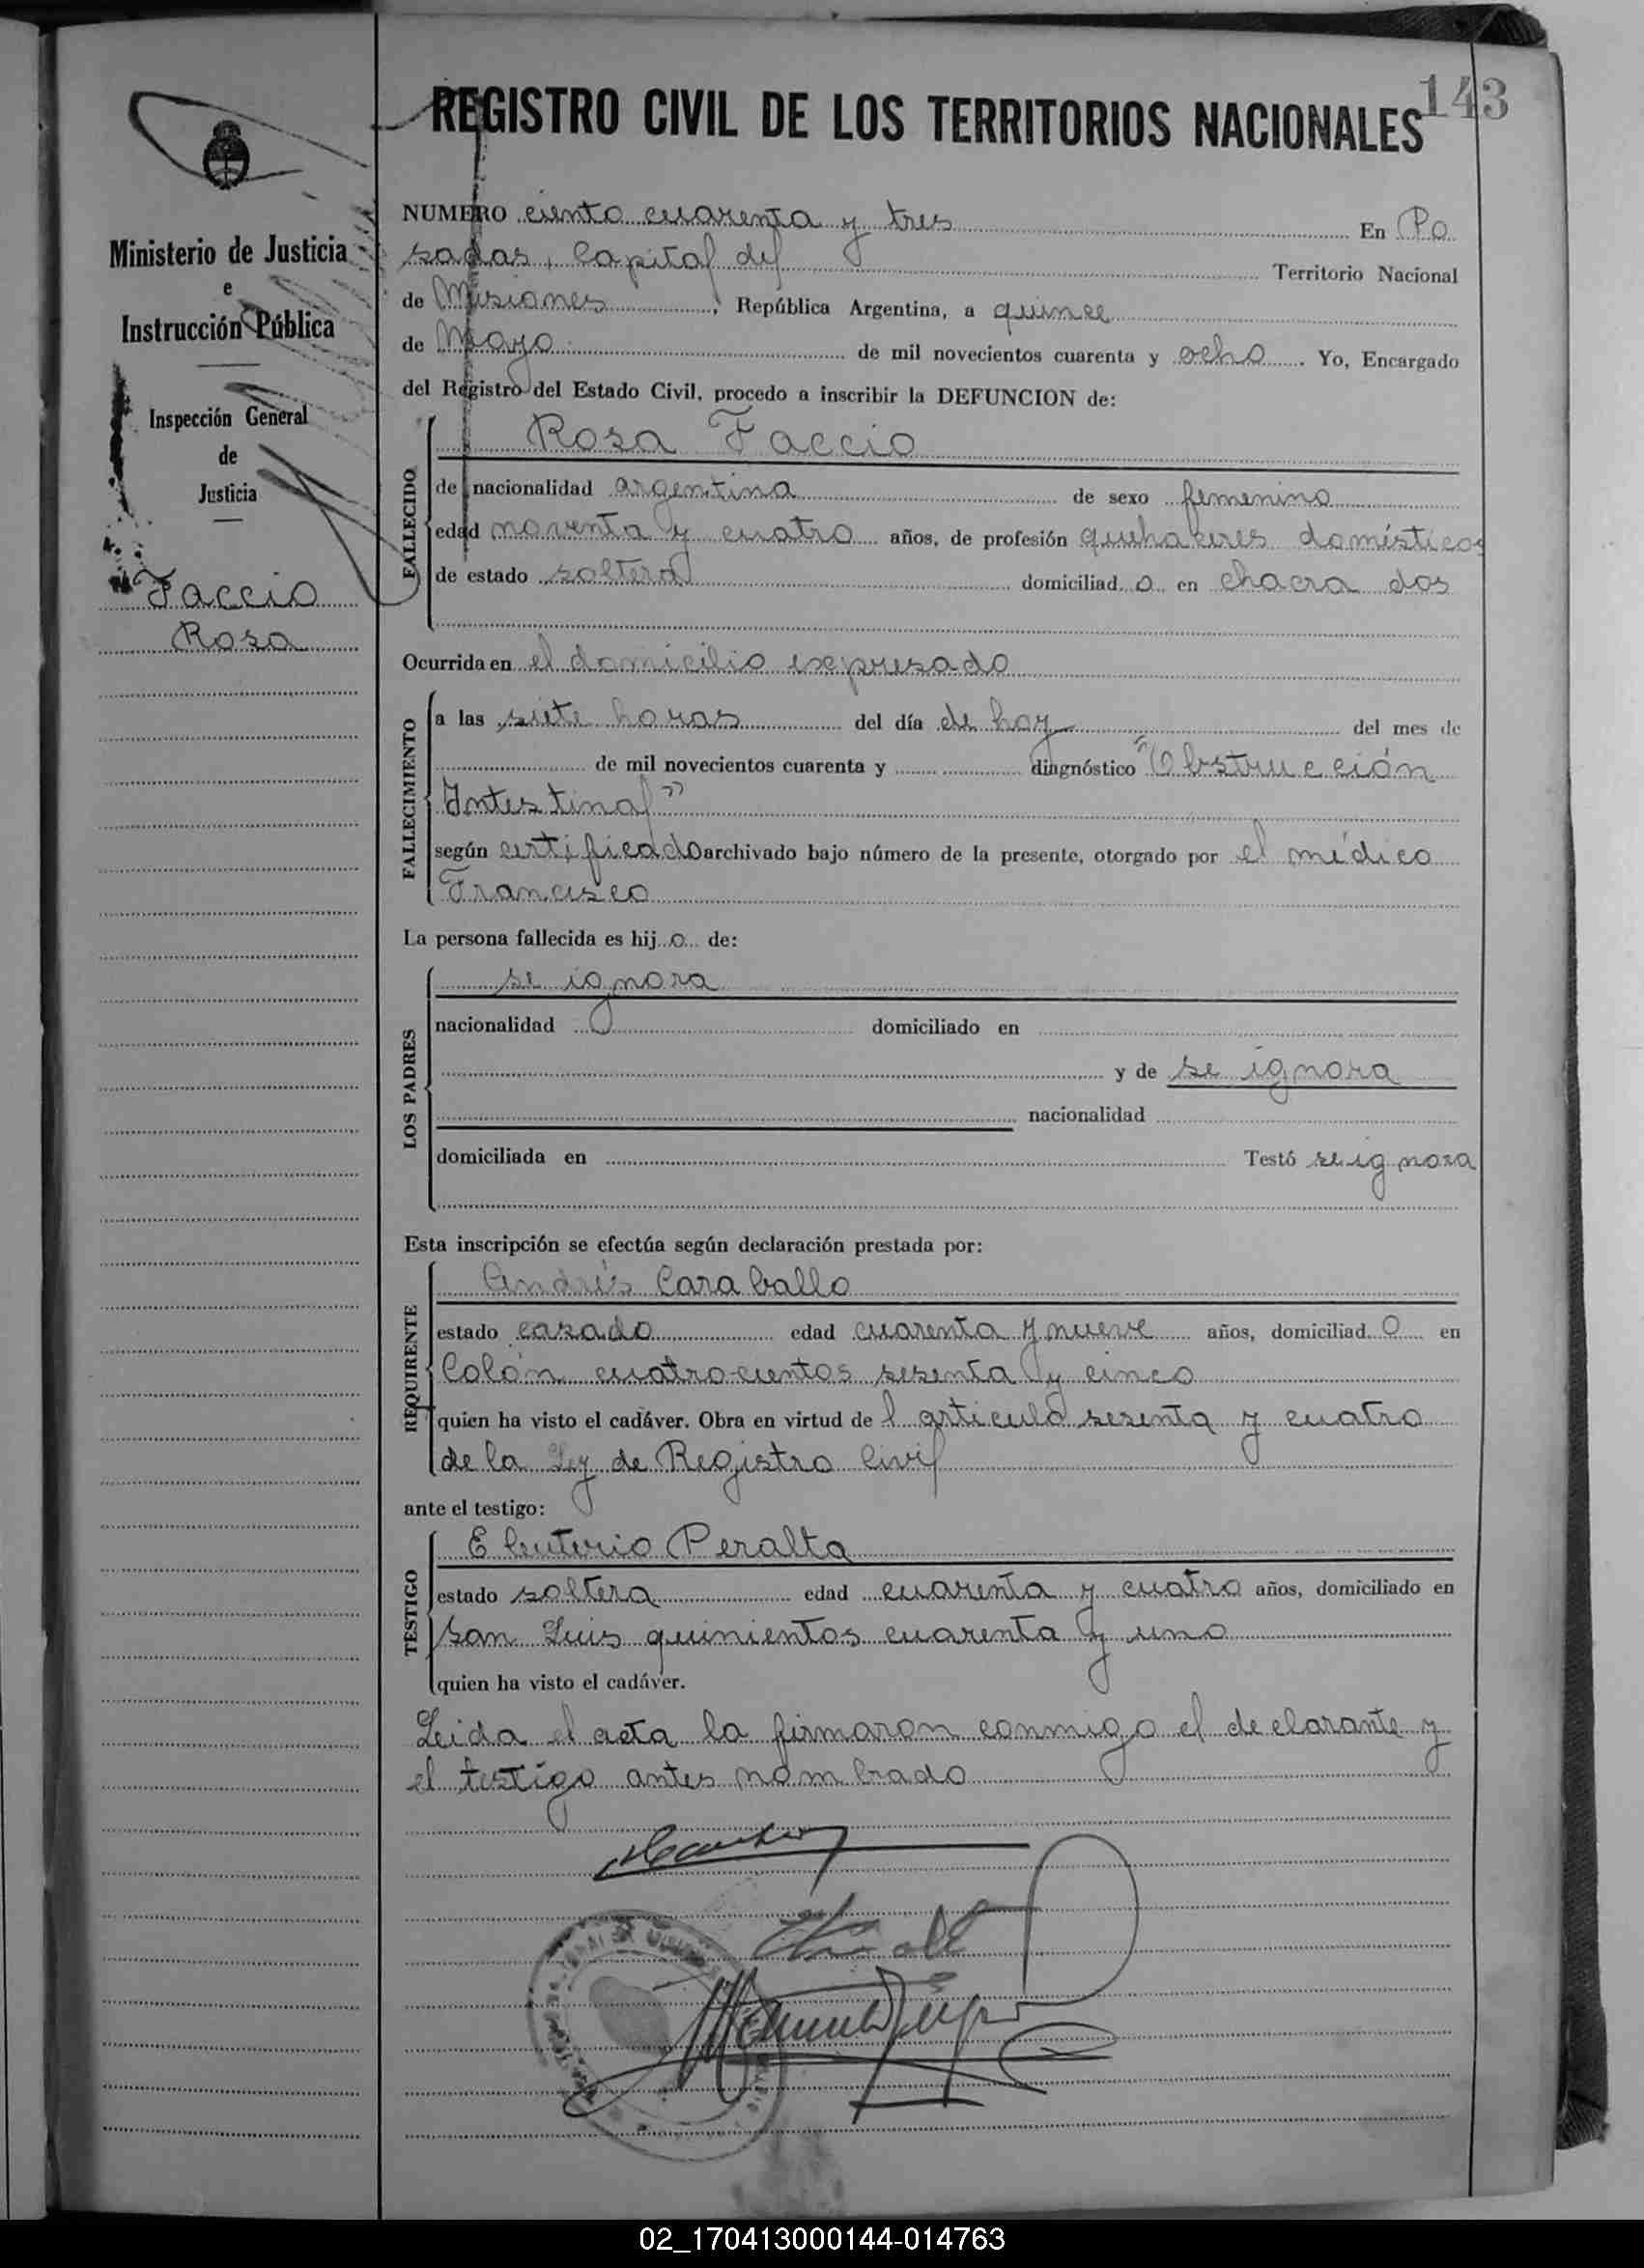 143
REGISTRO CIVIL DE LOS TERRITORIOS NACIONALES
Ministerio de Justicia
e
Instrucción Pública
Inspección General
de
Justicia
Faccio
Rosa
NUMERO ciento cuarenta y tres En Po
sadas, Capital del Territorio Nacional
de Misiones, República Argentina, a quince
de Mayo de mil novecientos cuarenta y ocho. Yo, Encargado
del Registro del Estado Civil, procedo a inscribir la DEFUNCION de:
FALLECIDO
Rosa Faccio
de nacionalidad argentina de sexo femenino
edad noventa y cuatro años, de profesión quehaceres domésticos
de estado soltera domiciliad a en chacra dos
Ocurrida en el domicilio expresado
FALLECIMIENTO
a las siete horas del día de hoy del mes de
de mil novecientos cuarenta y diagnóstico "Obstrucción
Intestinal"
según certificado archivado bajo número de la presente, otorgado por el médico
Francisco
La persona fallecida es hij a de:
LOS PADRES
se ignora
nacionalidad domiciliado en
y de se ignora
nacionalidad
domiciliada en Testó se ignora
Esta inscripción se efectúa según declaración prestada por:
REQUIRENTE
Andrés Caraballo
estado casado edad cuarenta y nueve años, domiciliad o en
Colón cuatrocientos sesenta y cinco
quien ha visto el cadáver. Obra en virtud de l articulo sesenta y cuatro
de la Ley de Registro Civil
ante el testigo:
TESTIGO
Eleuterio Peralta
estado soltero edad cuarenta y cuatro años, domiciliado en
San Luis quinientos cuarenta y uno
quien ha visto el cadáver.
Leida el acta la firmaron conmigo el declarante y
el testigo antes nombrado
02_170413000144-014763